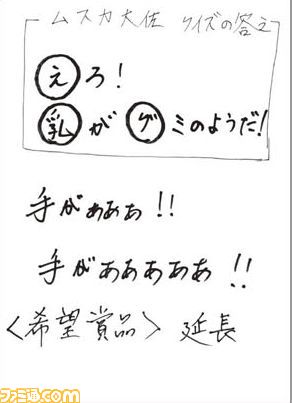 ムスカ大佐 クイズの答え
えろ!
乳がグミのようだ!
手がぁぁぁ!!
手がああああぁ!!
<希望賞品> 延長
ファミ通.com